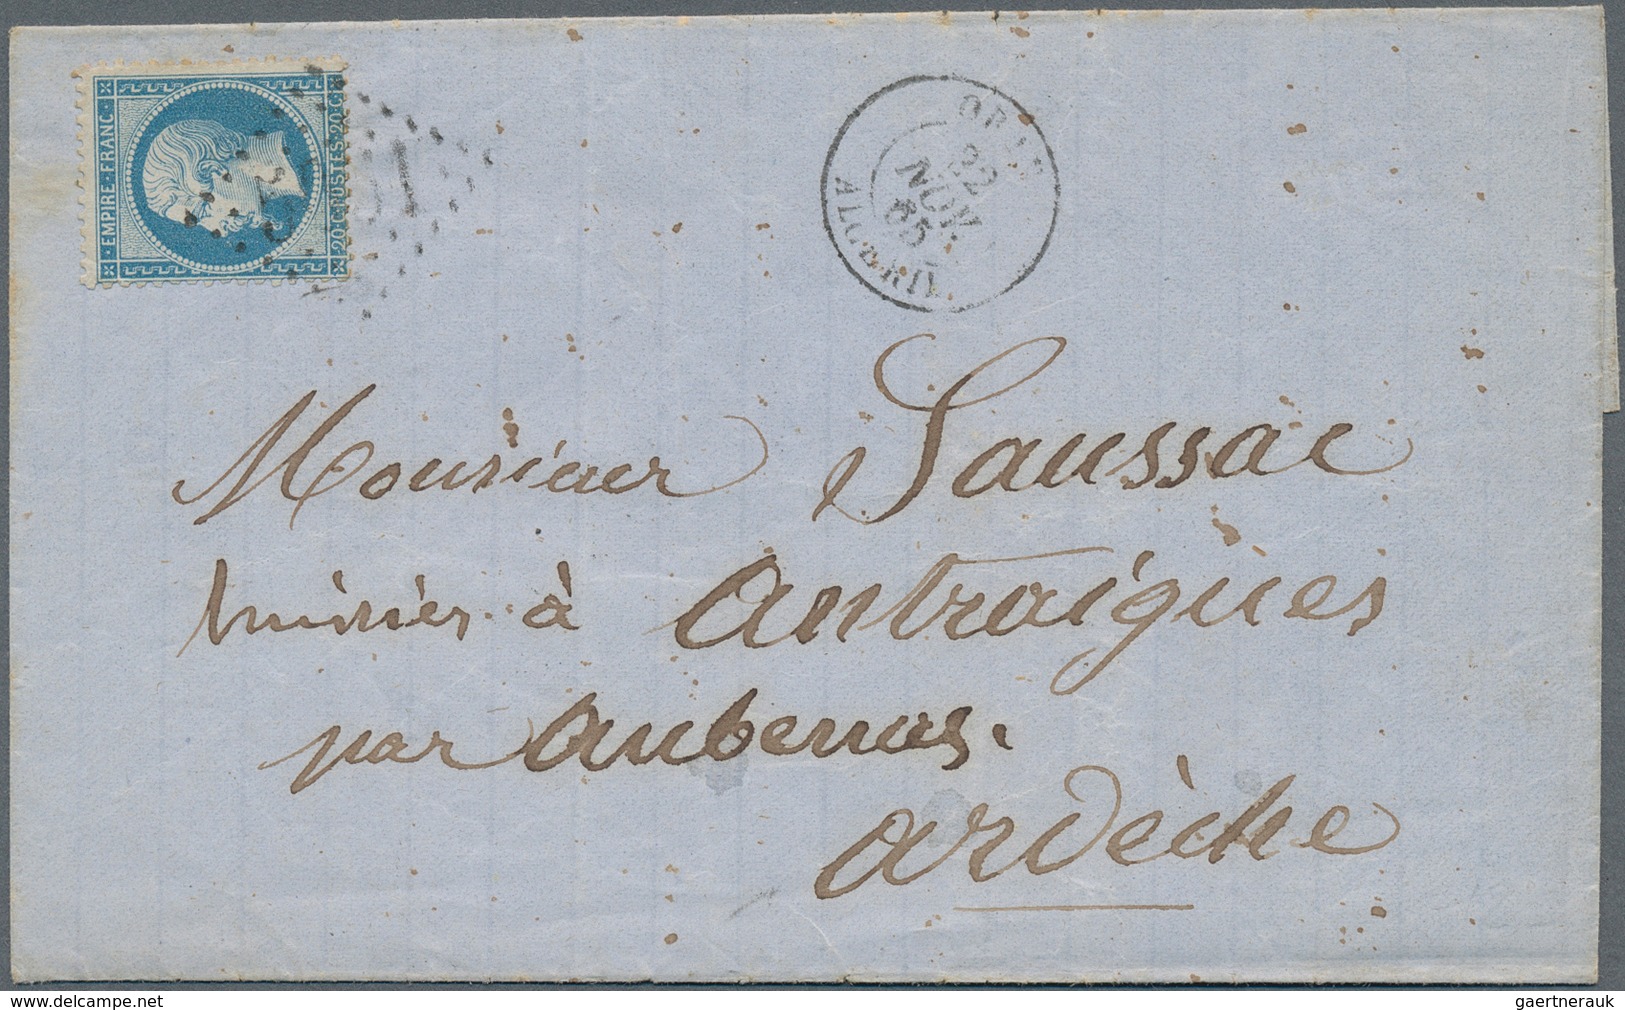 EMPIRE FRANC
20 C. POSTES 20 C.
ORAN
22
NOV.
65
ALGERIE
Monsieur Saussac
huissier à Antraigues
par Aubenas.
Ardèche
delcampe.net
gaertnerauk